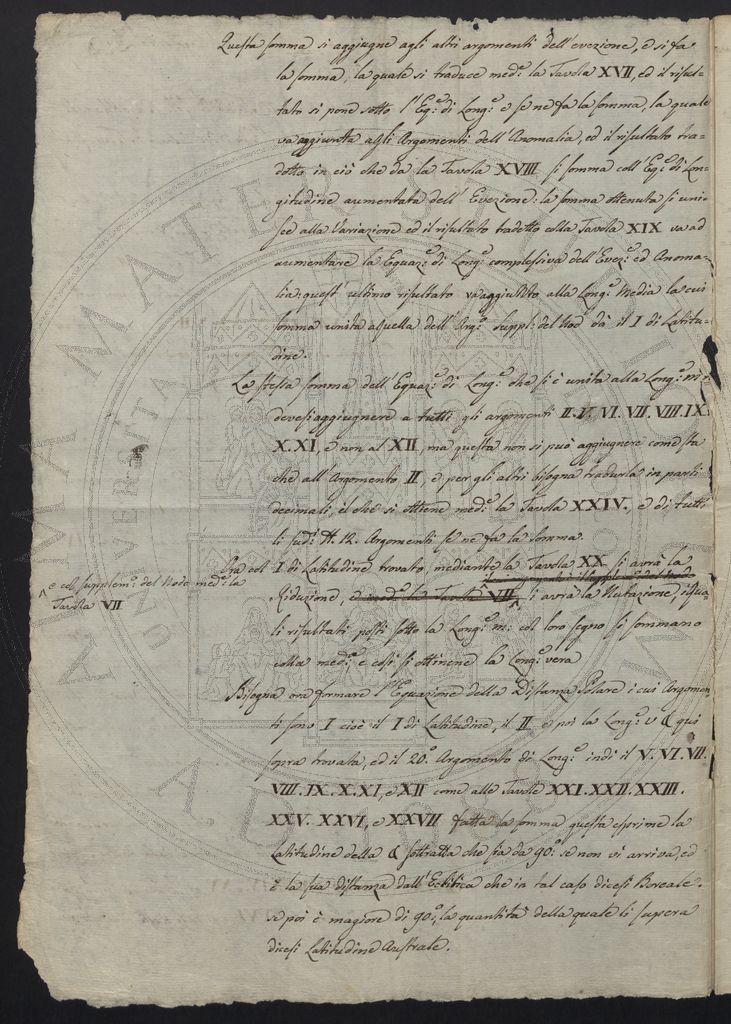 Questa somma si aggiugne agli altri argomenti dell'evezione, e si fa
la somma, la quale si traduce med.e la Tavola XVII, ed il risul-
tato si pone sotto l'Eq.e di Long.e e se ne fa la somma, la quale
va aggiunta agli Argomenti dell'Anomalia, ed il risultato tra=
dotto in ciò che dà la Tavola XVIII si somma coll'Eq.e di Lon-
gitudine aumentata dell'Evezione: la somma ottenuta si uni-
sce alla Variazione ed il risultato tradotto colla Tavola XIX va ad
aumentare la Equaz.e di Long.e complessiva dell'Evez.e ed Anoma-
lia; quest'ultimo risultato va aggiunto alla Long.e Media la cui
somma unita a quella dell'Arg.o Suppl. del Nod. dà il I di Latitu-
dine.
La stessa somma dell'Equaz.e di Long.e che si è unita alla Long.e m:
devesi aggiugnere a tutti gli argomenti II. V. VI. VII. VIII. IX.
X. XI, e non al XII, ma questa non si può aggiugnere come sta
che all'Argomento II, e per gli altri bisogna tradurla in parti
decimali, il che si ottiene med.e la Tavola XXIV. e di tutti
li sud.i 12. Argomenti se ne fa la somma.
Ora col I di Latitudine trovato, mediante la Tavola XX si avrà la
Riduzione, e med.e la Tavola VII si avrà la Nutazione, i qua-
^ e col supplem.o del Nodo med.e la
Tavola VII
li risultati posti sotto la Long.e m: col loro segno si sommano
colla med.a e così si ottinene la Long.e vera
Bisogna ora formare l'Equazione della Distanza Polare i cui Argomen-
ti sono I cioè il I di Latitudine, il II e poi la Long.e v ☾ qui
sopra trovata, ed il 20.o Argomento di Long.e indi il V. VI. VII.
VIII. IX. X. XI, e XII come alle Tavole XXI. XXII. XXIII.
XXV. XXVI, e XXVII fatta la somma questa esprime la
Latitudine della ☾ sottratta che sia da 90.o se non vi arriva, ed
è la sua distanza dall'Eclitica che in tal caso dicesi Boreale.
se poi è magiore di 90.o, la quantità della quale li supera
dicesi Latitudine Australe.
ALMA MATER STUDIORUM